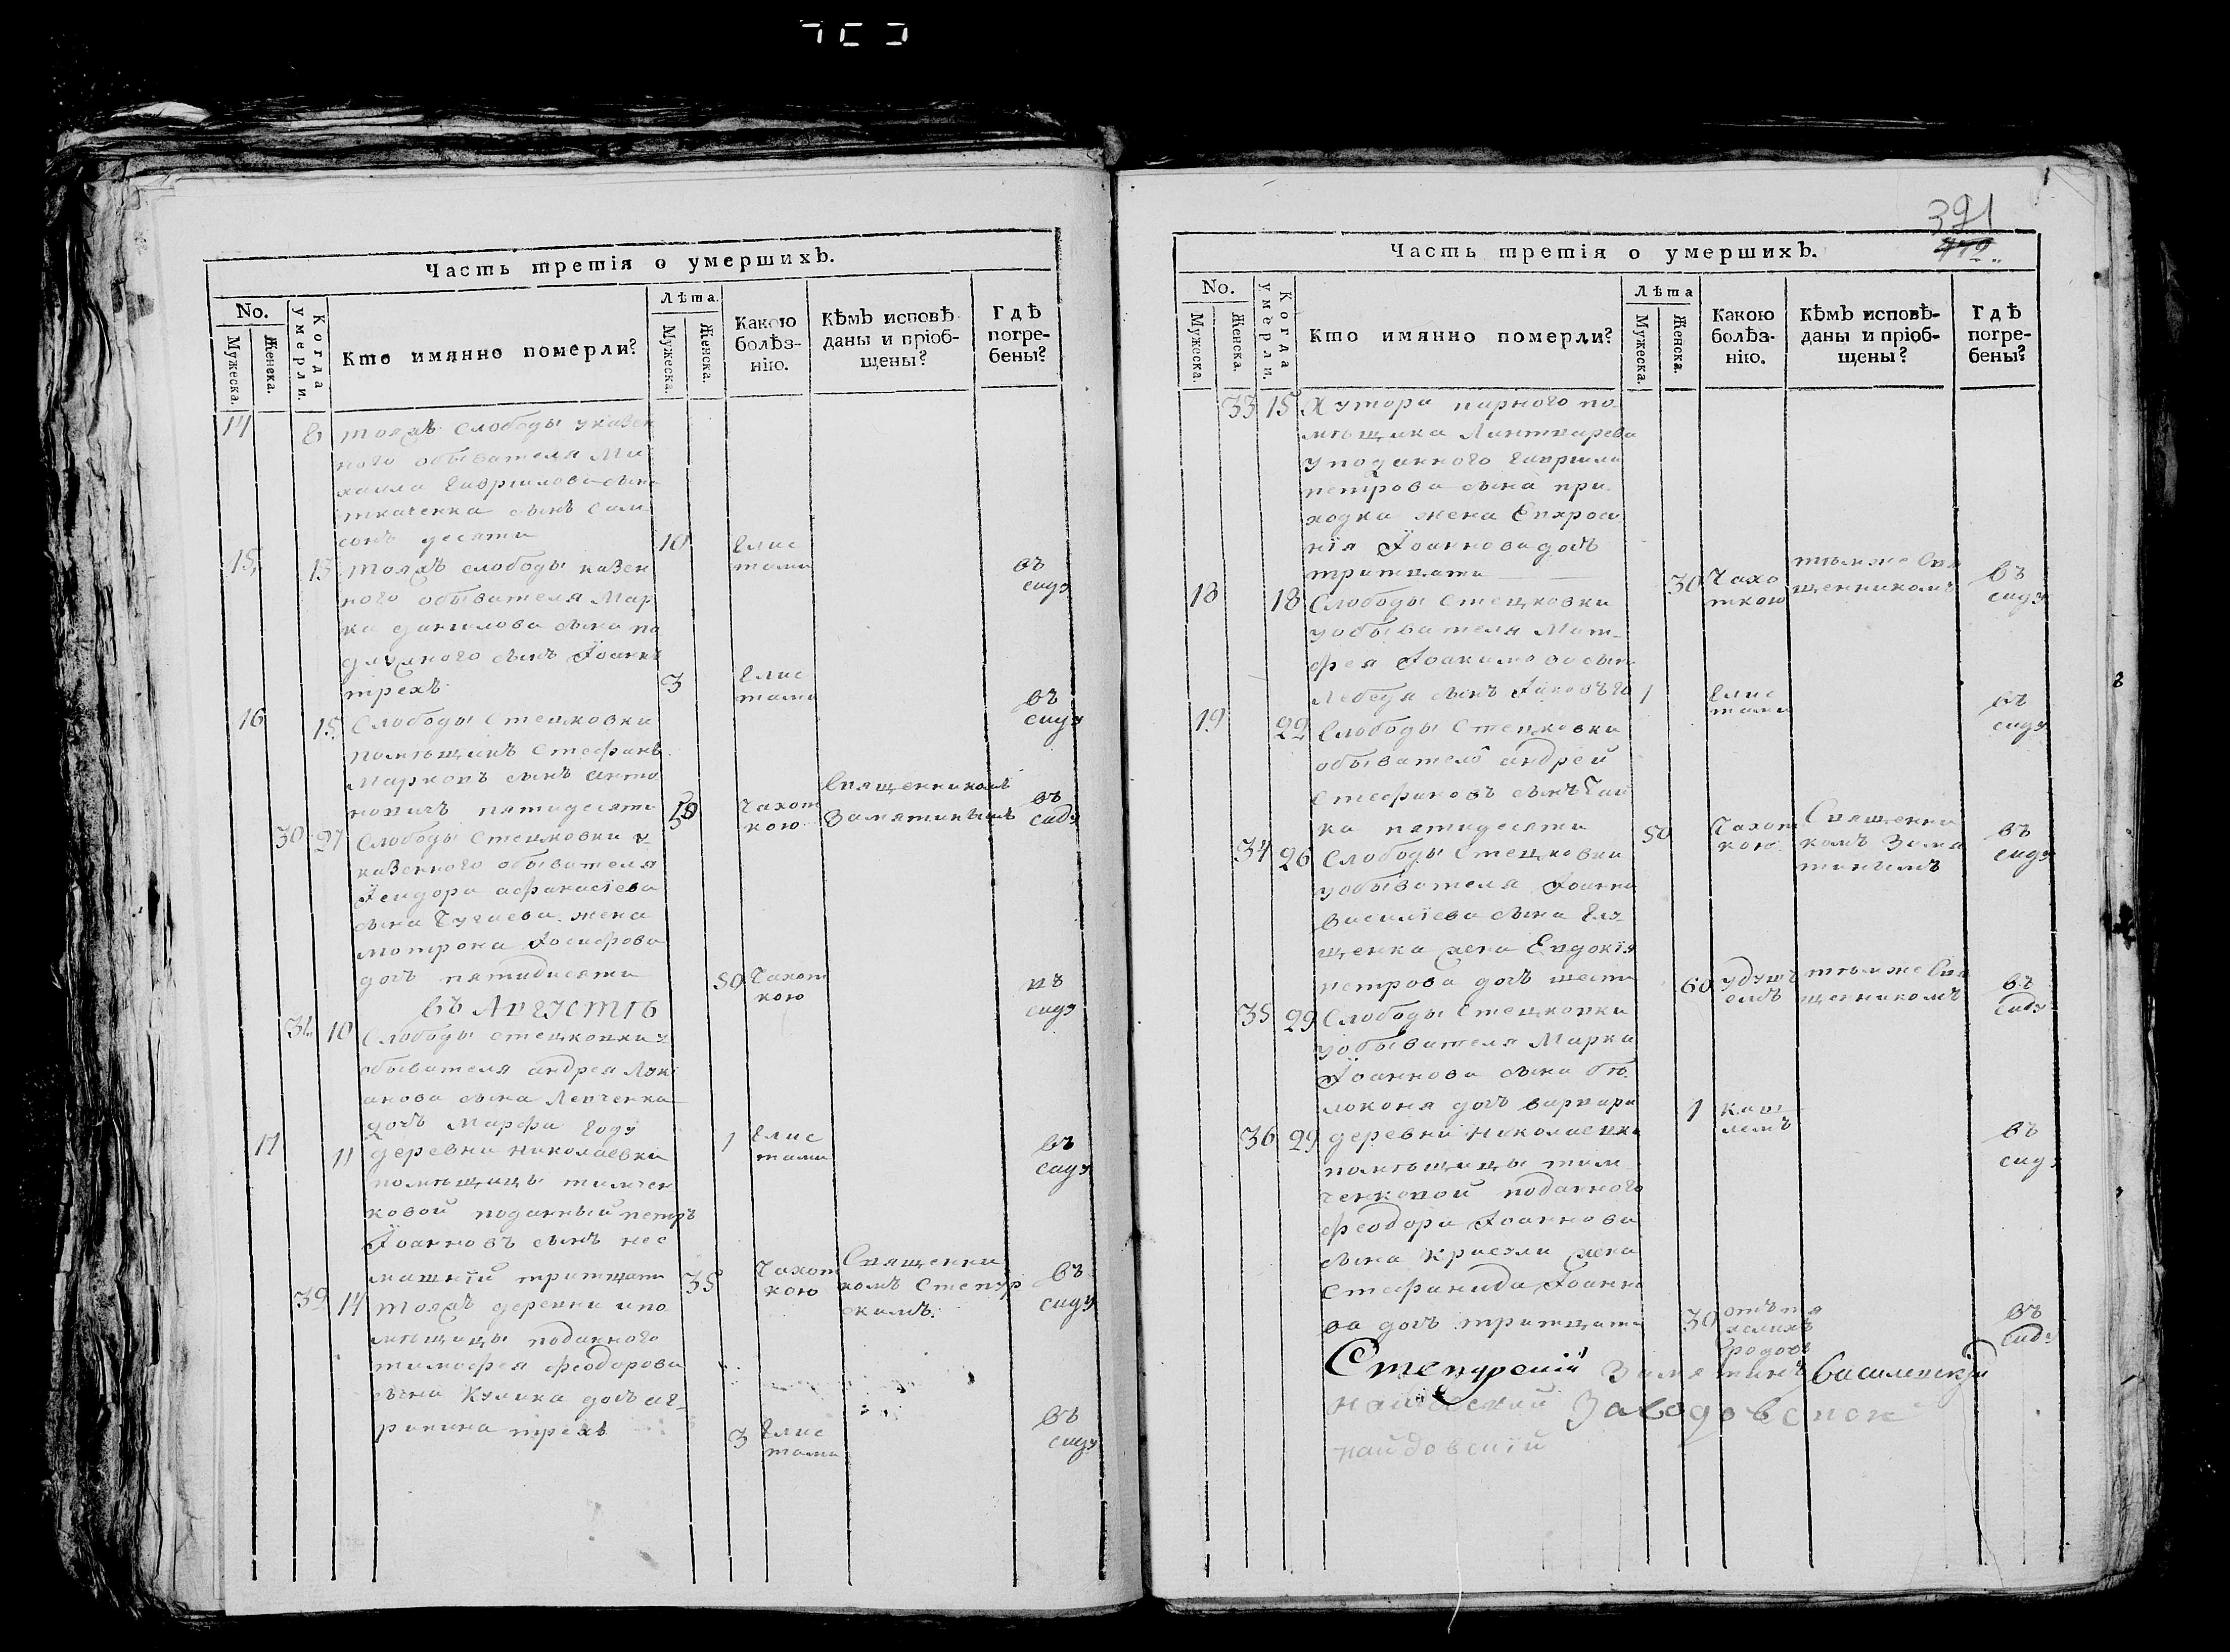 391
Часть третія о умершихъ.
No.
Мужеска.
Женска.
Когда умерли.
Кто имянно померли?
Лѣта.
Мужеска.
Женска.
Какою болѣз-
нію.
Кѣмъ исповѣ-
даны и пріоб-
щены?
Гдѣ
погре-
бены?
14 8 тояжъ слободы указен
ного обывателя Ми
хаила Гаврилова сына
ткаченка сынъ Сам
сонъ десяти 10 глис
тами въ саду
15 13 тояжъ слободы казен
ного обывателя Мар
ка данилова сына
сынъ Іоаннъ
трехъ 3 глис
тами въ саду
16 15 Слободы Стецковки
помѣщикъ Стефанъ
Марковъ сынъ анто
новичъ пятидесяти 50 чахот
кою Священникомъ
Замятинымъ въ саду
30 27 Слободы Стецковки у
казенного обывателя
Ісидора афанасіева
сына Чугаева жена
мотрона Іосифова
дочъ пятидисяти 50 чахот
кою въ саду
въ Августѣ
31 10 Слободы стецковки у
обывателя андрея Лук
анова сына Левченка
дочъ Марфа году 1 глис
тами въ саду
17 11 деревни николаевки
помѣщицы тимчен
ковой поданный петръ
Іоанновъ сынъ нес
машній тритцати 35 чахот
кою Священни
комъ Степур
скимъ въ саду
39 14 тояжъ деревни и по
мѣщицы поданного
тимофея феодорова
сына Кулика дочъ аг-
рипина трехъ 3 глис
тами въ саду
Часть третія о умершихъ.
No.
Мужеска.
Женска.
Когда умерли.
Кто имянно померли?
Лѣта
Мужеска.
Женска.
Какою
болѣз-
нію.
Кѣмъ исповѣ-
даны и пріоб-
щены?
Гдѣ
погре-
бены?
33 15 Хутора парного по
мѣщика Линтварева
у поданного Гаврила
петрова сына при
ходка жена Евхроси
нія Іоаннова дочъ
тритцати 30 чахо
ткою тѣмже Свя
щенникомъ въ саду
18 18 Слободы Стецковки
у обывателя Мат-
фея Іоакимова сына
Лебедя сынъ Іаковъ 1 глис
тами въ саду
19 22 Слободы Стецковки
обыватель андрей
Стефановъ сынъ Чай
ка пятидесяти 50 чахот
кою Священни
комъ Замя
тинымъ въ саду
34 26 Слободы Стецковки
у обывателя Іоанна
василіева сына Глу
щенка жена Евдокія
петрова дочъ шести 60 удуш
емъ тѣмже Свя
щенникомъ въ саду
35 29 Слободы Стецковки
у обывателя Марка
Іоаннова сына бѣ
локоня дочъ варвара 1 каш
лемъ въ саду
36 29 деревни николаевки
помѣщицы тим
ченковой поданного
феодора Іоаннова
сына жена
Стефанида Іоанно
ва дочъ тритцати 30 отъ тя
желихъ
родовъ въ саду
Степурскій Замятинъ Василевскій
найдовскій